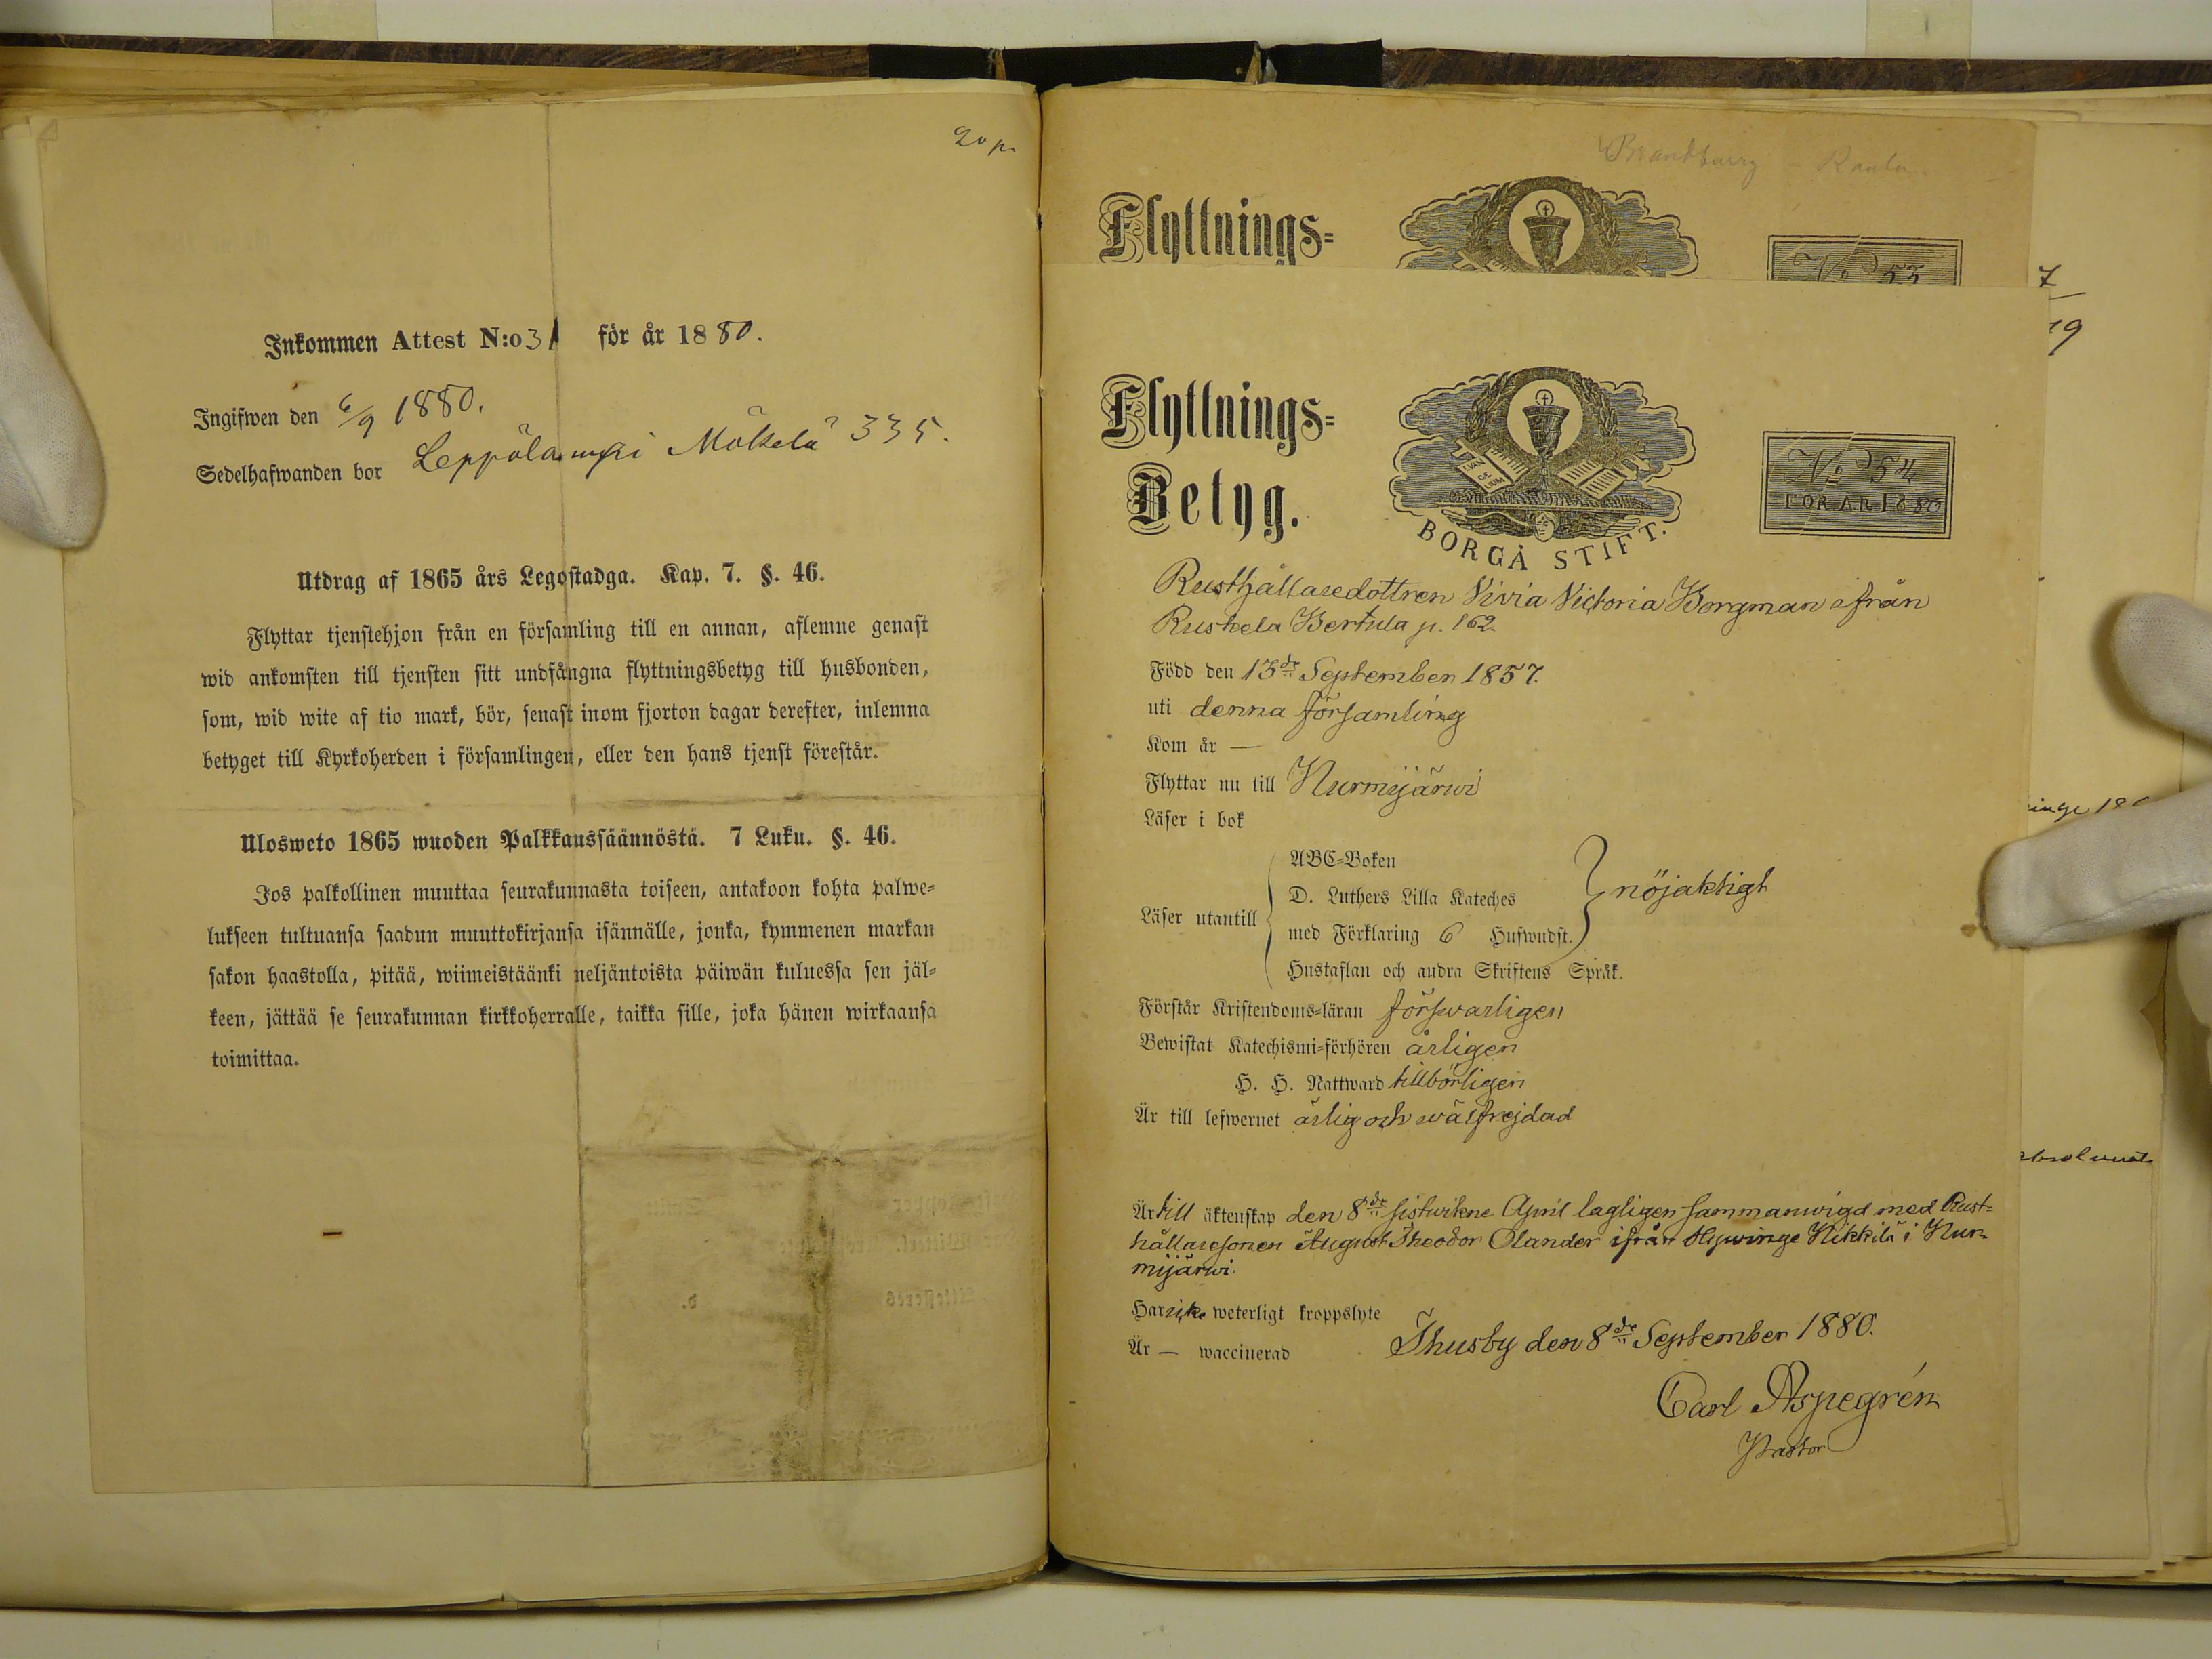 20 p.
Inkommen Attest N:o 31 för år 1880.
Ingifwen den 6/9 1880.
Sedelhafwanden bor Leppölampi Mökelä 335.
Utdrag af 1865 års Legostadga. Kap. 7. §. 46.
Flyttar tjenstehjon från en församling till en annan, aflemne genast
wid ankomsten till tjensten sitt undfångna flyttningsbetyg till husbonden,
som, wid wite af tio mark, bör, senast inom fjorton dagar derefter, inlemna
betyget till Kyrkoherden i församlingen, eller den hans tjenst förestår.
Ulosweto 1865 wuoden Palkkaussäännöstä. 7 Luku. §. 46.
Jos palkollinen muuttaa seurakunnasta toiseen, antakoon kohta palwe=
lukseen tultuansa saadun muuttokirjansa isännälle, jonka, kymmenen markan
sakon haastolla, pitää, wiimeistäänki neljäntoista päiwän kuluessa sen jäl=
keen, jättää se seurakunnan kirkkoherralle, taikka sille, joka hänen wirkaansa
toimittaa.
Flyttnings=
No 53
7
19
Flyttnings=
Betyg.
EVAN
GE
LIUM
BORGÅ STIFT.
No 54
FÖR ÅR 1880
Rusthållaredottren Vivia Victoria Borgman ifrån
Ruskela Bertula p. 162.
Född den 13de September 1857.
uti denna församling
Kom år —
Flyttar nu till Nurmijärwi
Läser i bok
Läser utantill
ABC=Boken
D. Luthers Lilla Kateches
med Förklaring 6 Hufwudst.
Hustaflan och andra Skriftens Språk.
nöjaktigt
Förstår Kristendoms=läran förswarligen
Bewistat Katechismi=förhören årligen
H. H. Nattward tillbörligen
Är till lefwernet ärlig och wälfrejdad
Är till äktenskap den 8de sistwikne April lagligen sammanwigd med Rust=
hållaresonen August Theodor Olander ifrån Hywinge Nikkilä i Nur=
mijärwi.
Har icke weterligt kroppslyte
Är — waccinerad
Thusby den 8de September 1880.
Carl Aspegrén
Pastor